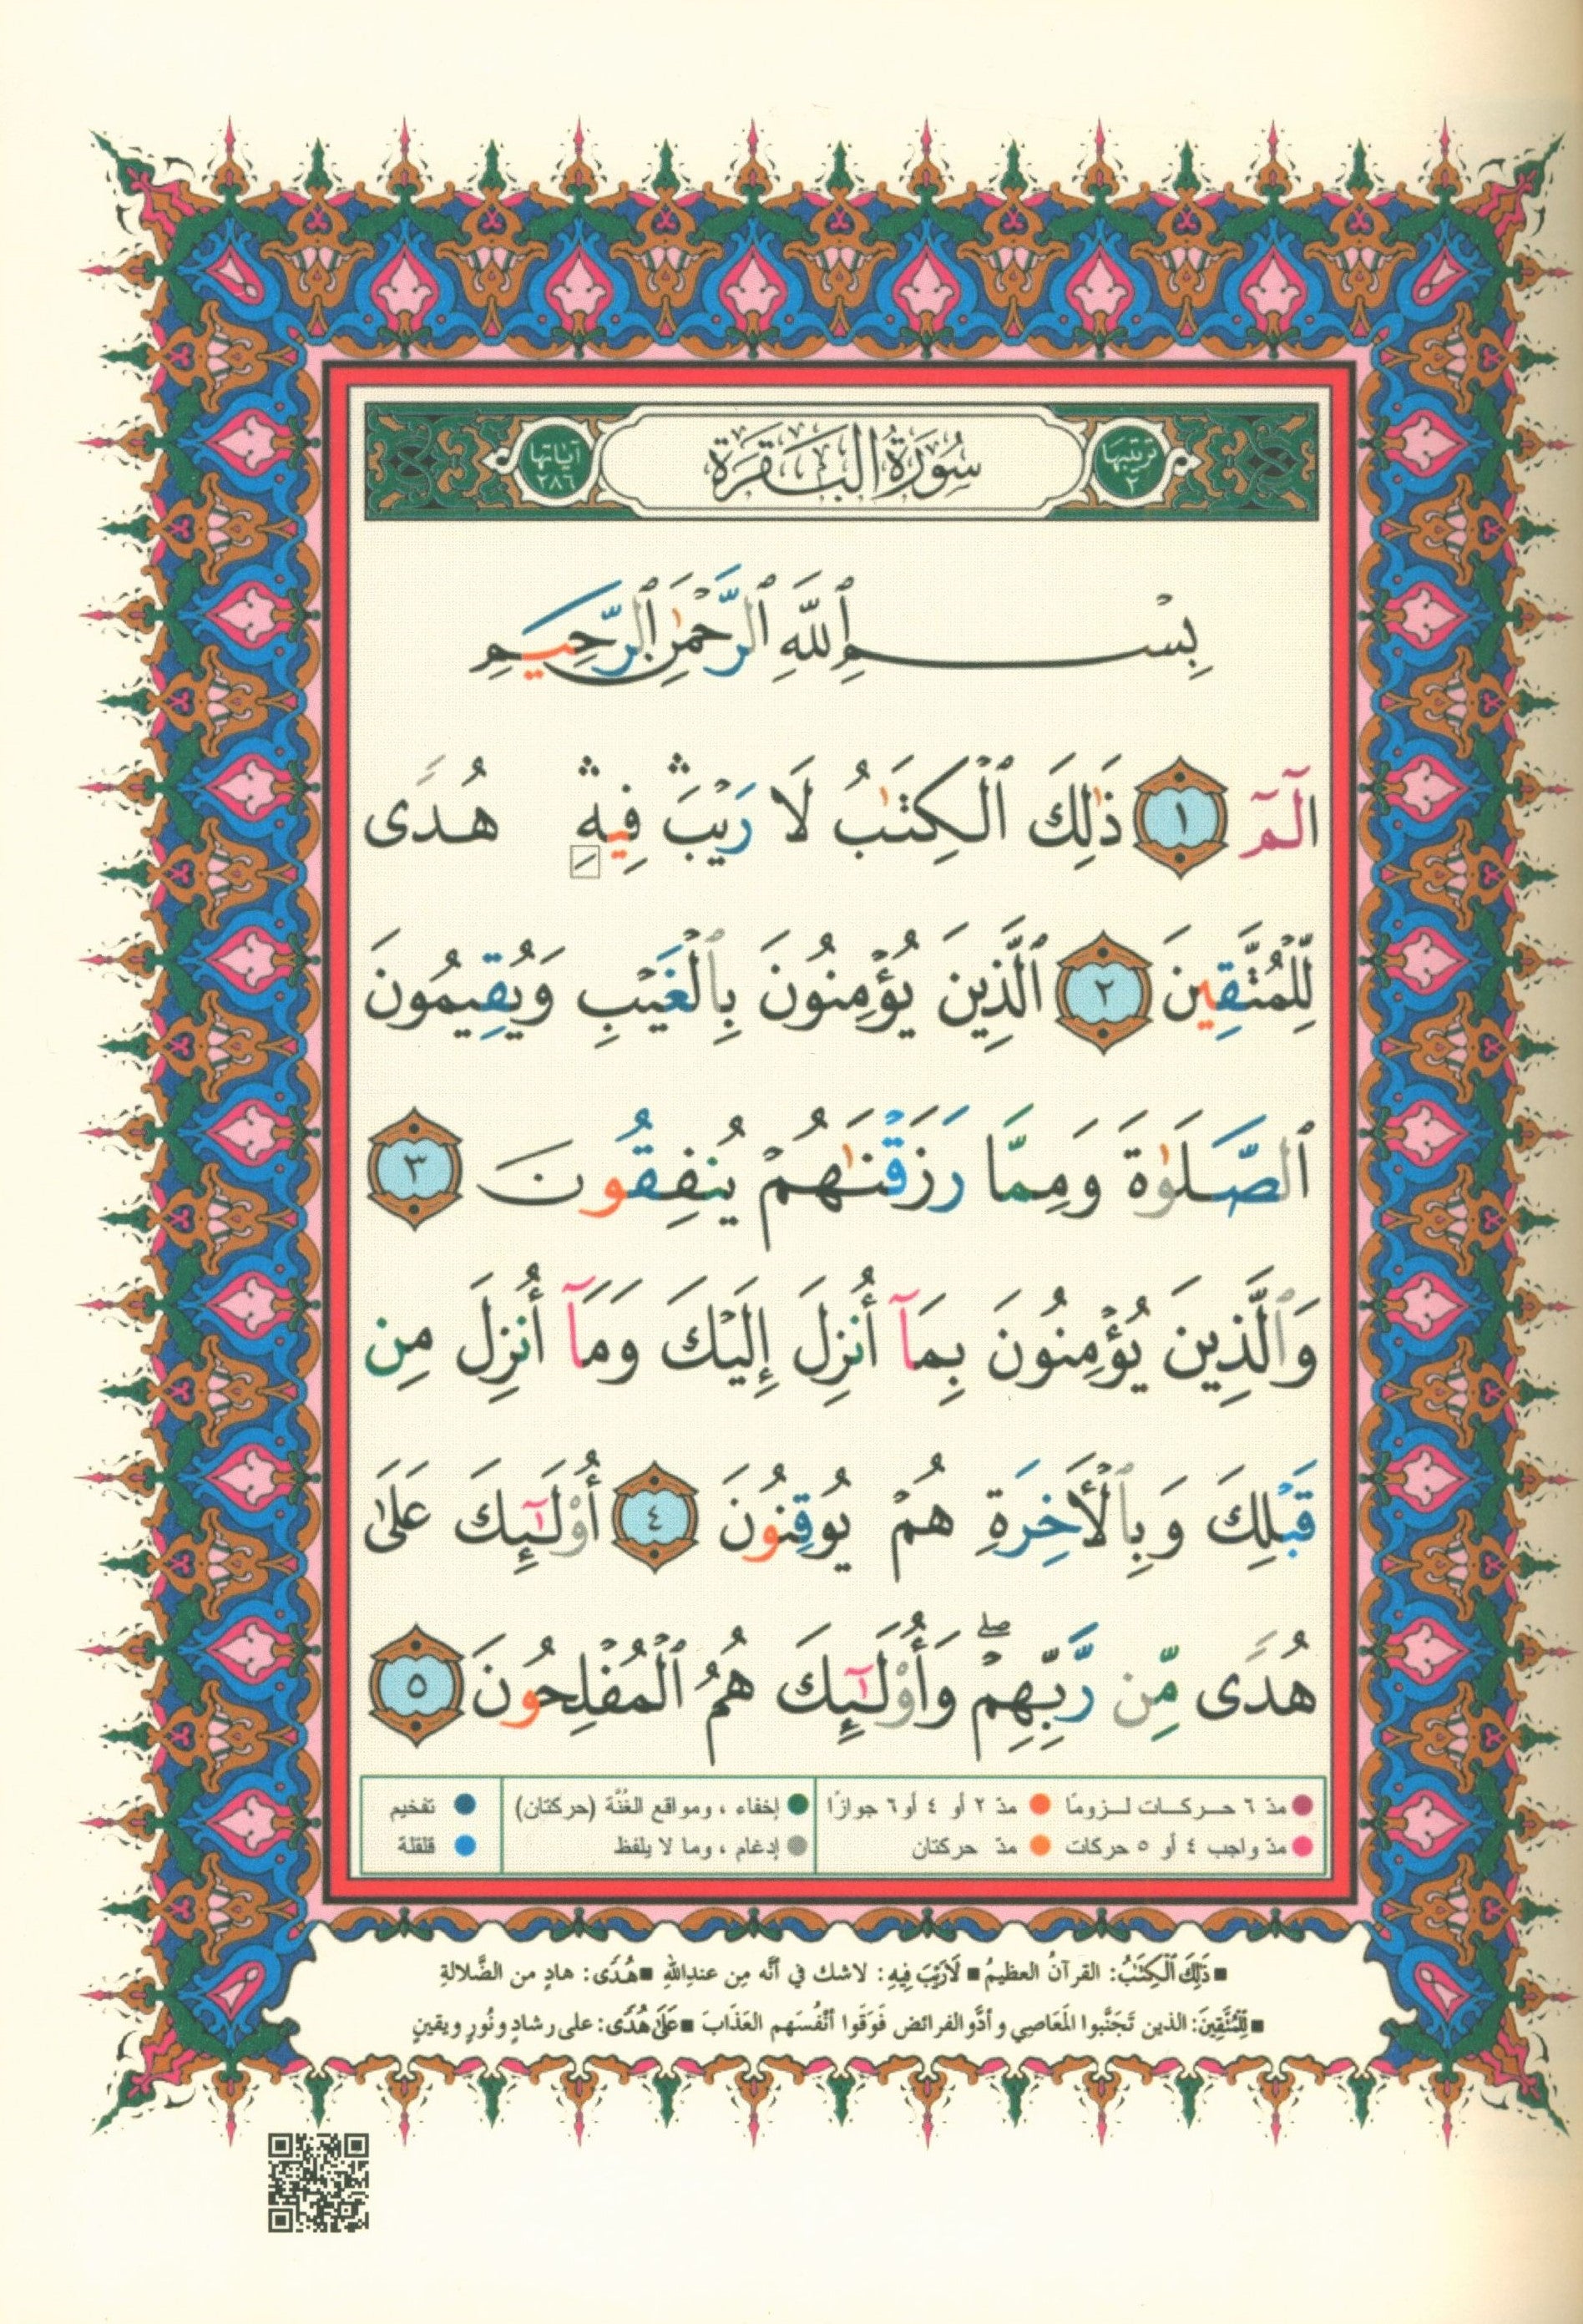 ترتيبها ٢
سُورَةُ البَقَرَة
آياتها ٢٨٦
بِسْمِ ٱللَّهِ ٱلرَّحْمَٰنِ ٱلرَّحِيمِ
الٓمٓ ١ ذَٰلِكَ ٱلْكِتَٰبُ لَا رَيْبَ ۛ فِيهِ ۛ هُدًى
لِّلْمُتَّقِينَ ٢ ٱلَّذِينَ يُؤْمِنُونَ بِٱلْغَيْبِ وَيُقِيمُونَ
ٱلصَّلَوٰةَ وَمِمَّا رَزَقْنَٰهُمْ يُنفِقُونَ ٣
وَٱلَّذِينَ يُؤْمِنُونَ بِمَآ أُنزِلَ إِلَيْكَ وَمَآ أُنزِلَ مِن
قَبْلِكَ وَبِٱلْأَخِرَةِ هُمْ يُوقِنُونَ ٤ أُو۟لَٰٓئِكَ عَلَىٰ
هُدًى مِّن رَّبِّهِمْ ۖ وَأُو۟لَٰٓئِكَ هُمُ ٱلْمُفْلِحُونَ ٥
مدّ ٦ حركات لزومًا ● مدّ ٢ أو ٤ أو ٦ جوازًا ● إخفاء ، ومواقع الغُنَّة (حركتان) ● تفخيم
مدّ واجب ٤ أو ٥ حركات ● مدّ حركتان ● إدغام ، وما لا يلفظ ● قلقلة
■ ذَٰلِكَ ٱلْكِتَٰبُ: القرآنُ العظيمُ ■ لَا رَيْبَ فِيهِ: لا شك في أنَّه مِن عندِ اللهِ ■ هُدًى: هادٍ من الضَّلالةِ
■ لِّلْمُتَّقِينَ: الذين تَجَنَّبوا المَعَاصِي وأدَّوا الفرائض فَوَقَوا أنْفُسَهم العَذَابَ ■ عَلَىٰ هُدًى: على رشادٍ ونُورٍ ويقينٍ